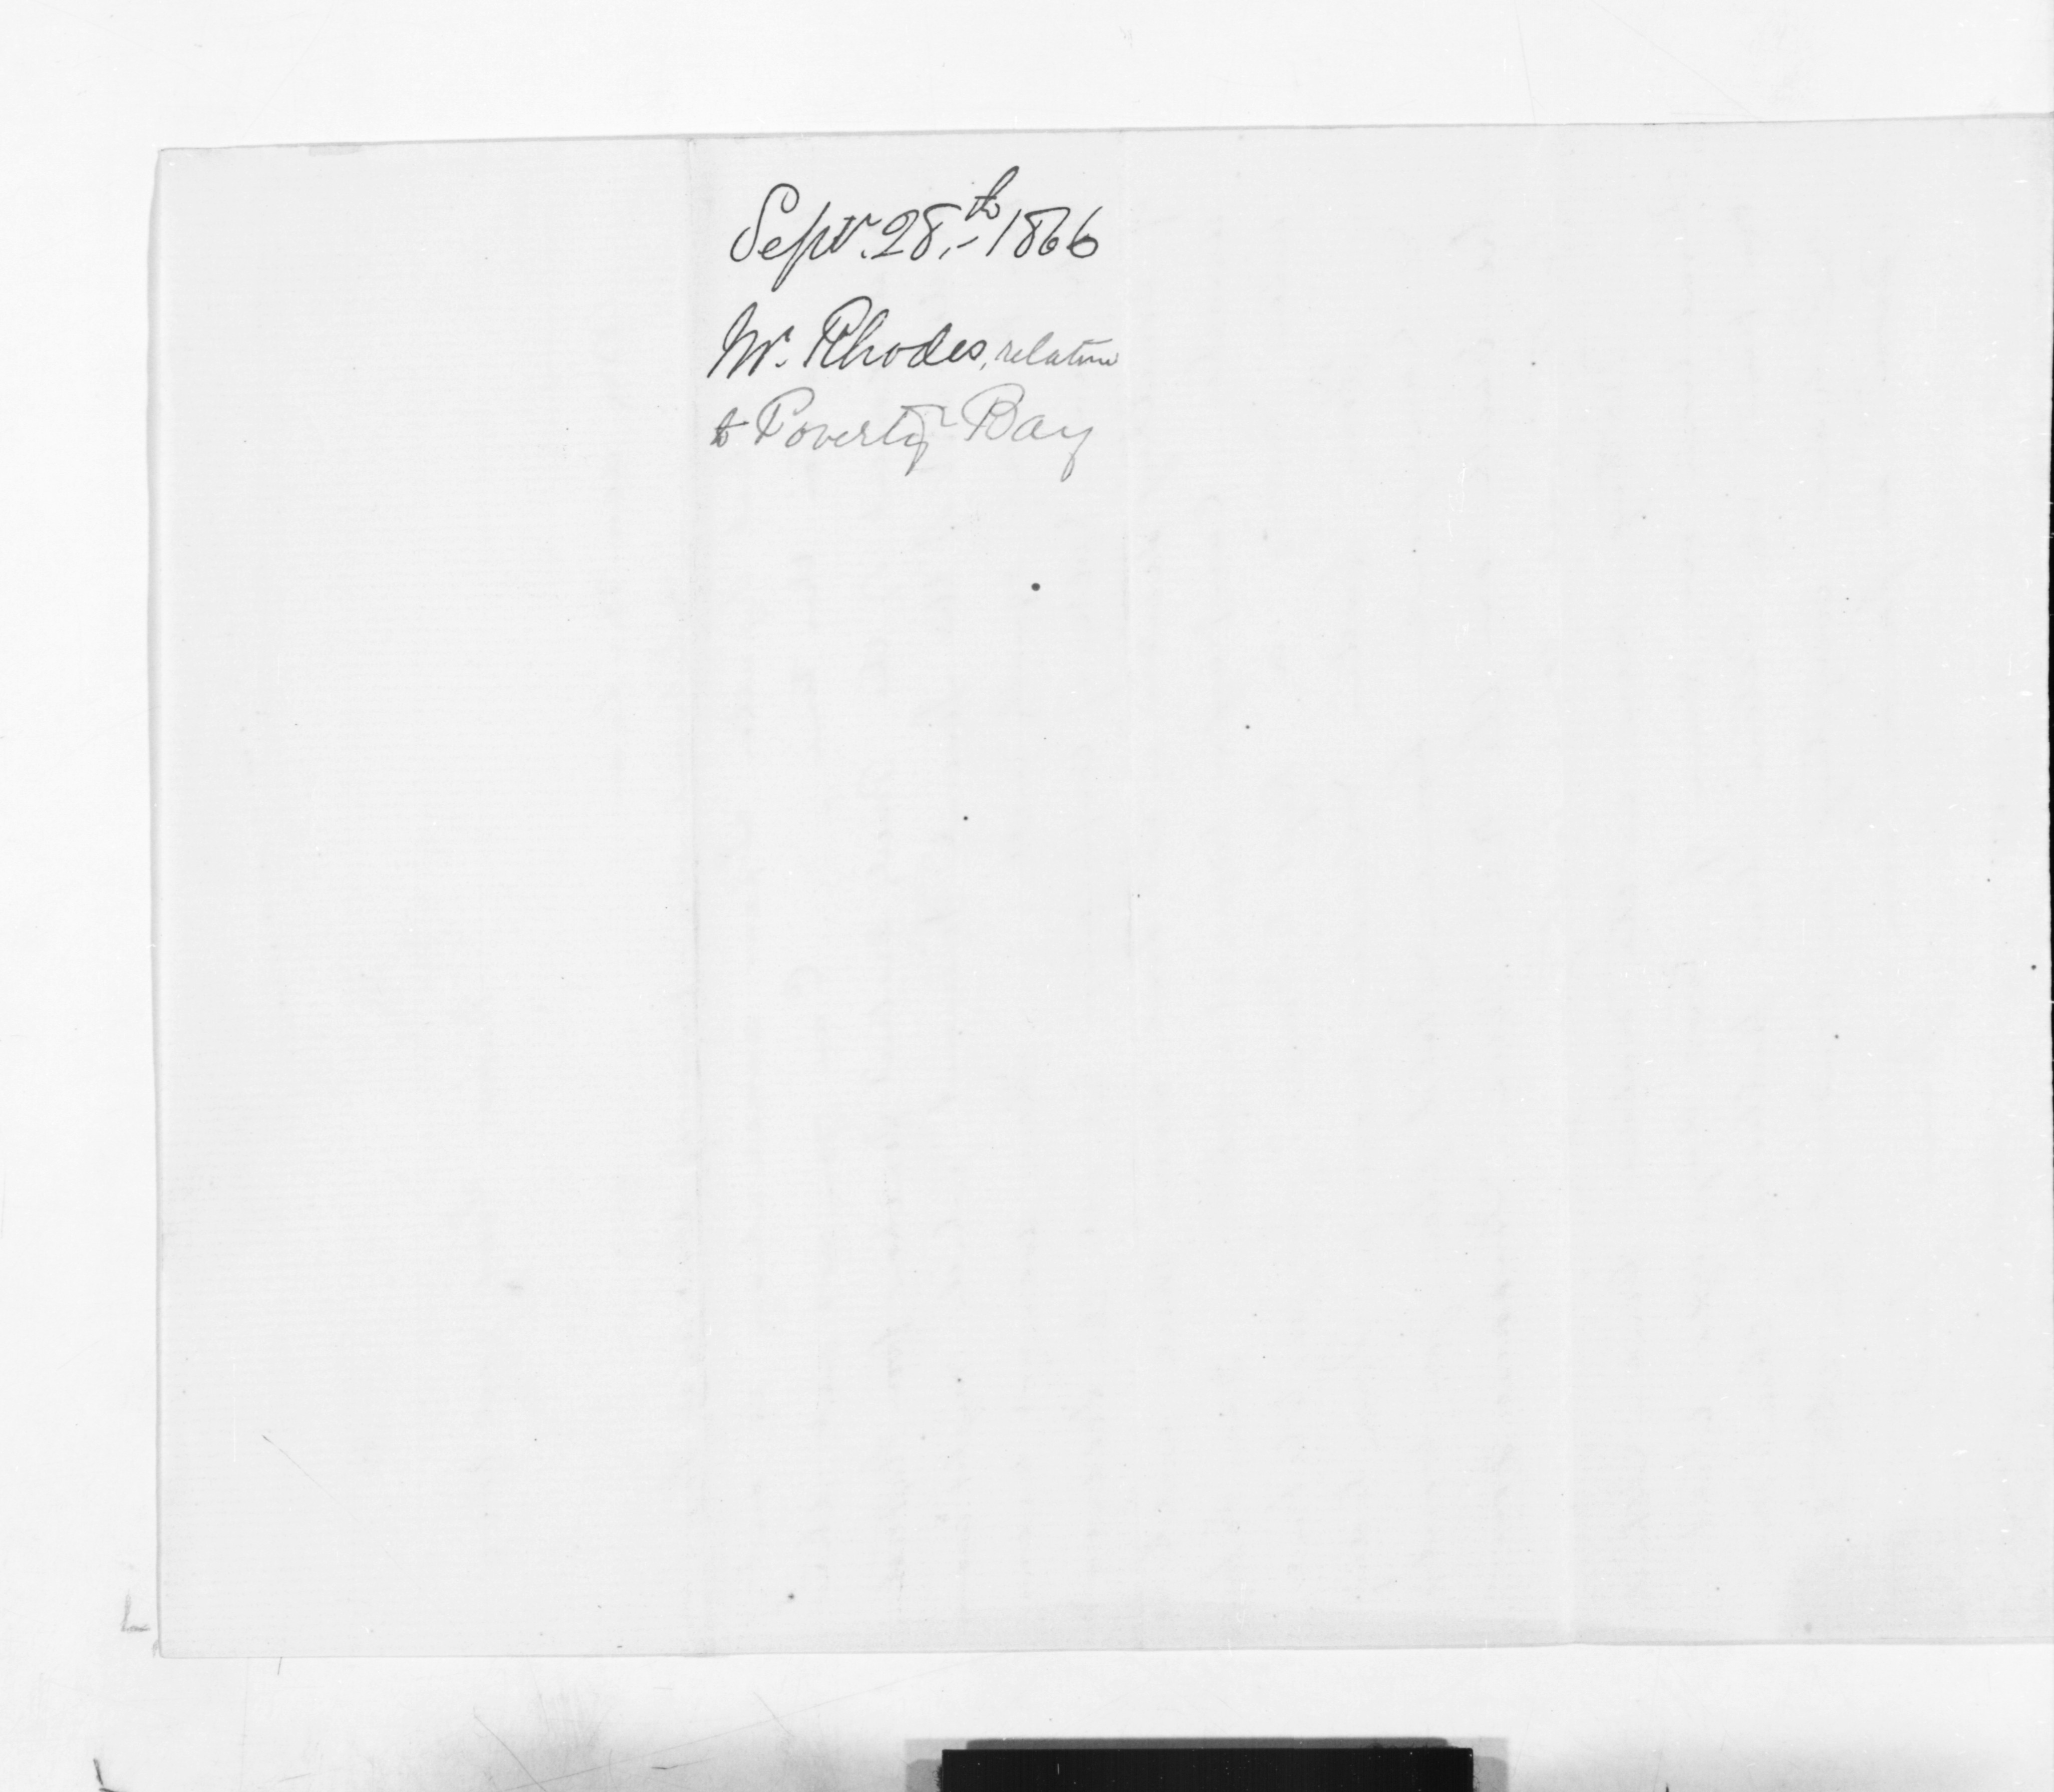 Septr. 28.th 1866
Mr. Rhodes, relative
to Poverty Bay